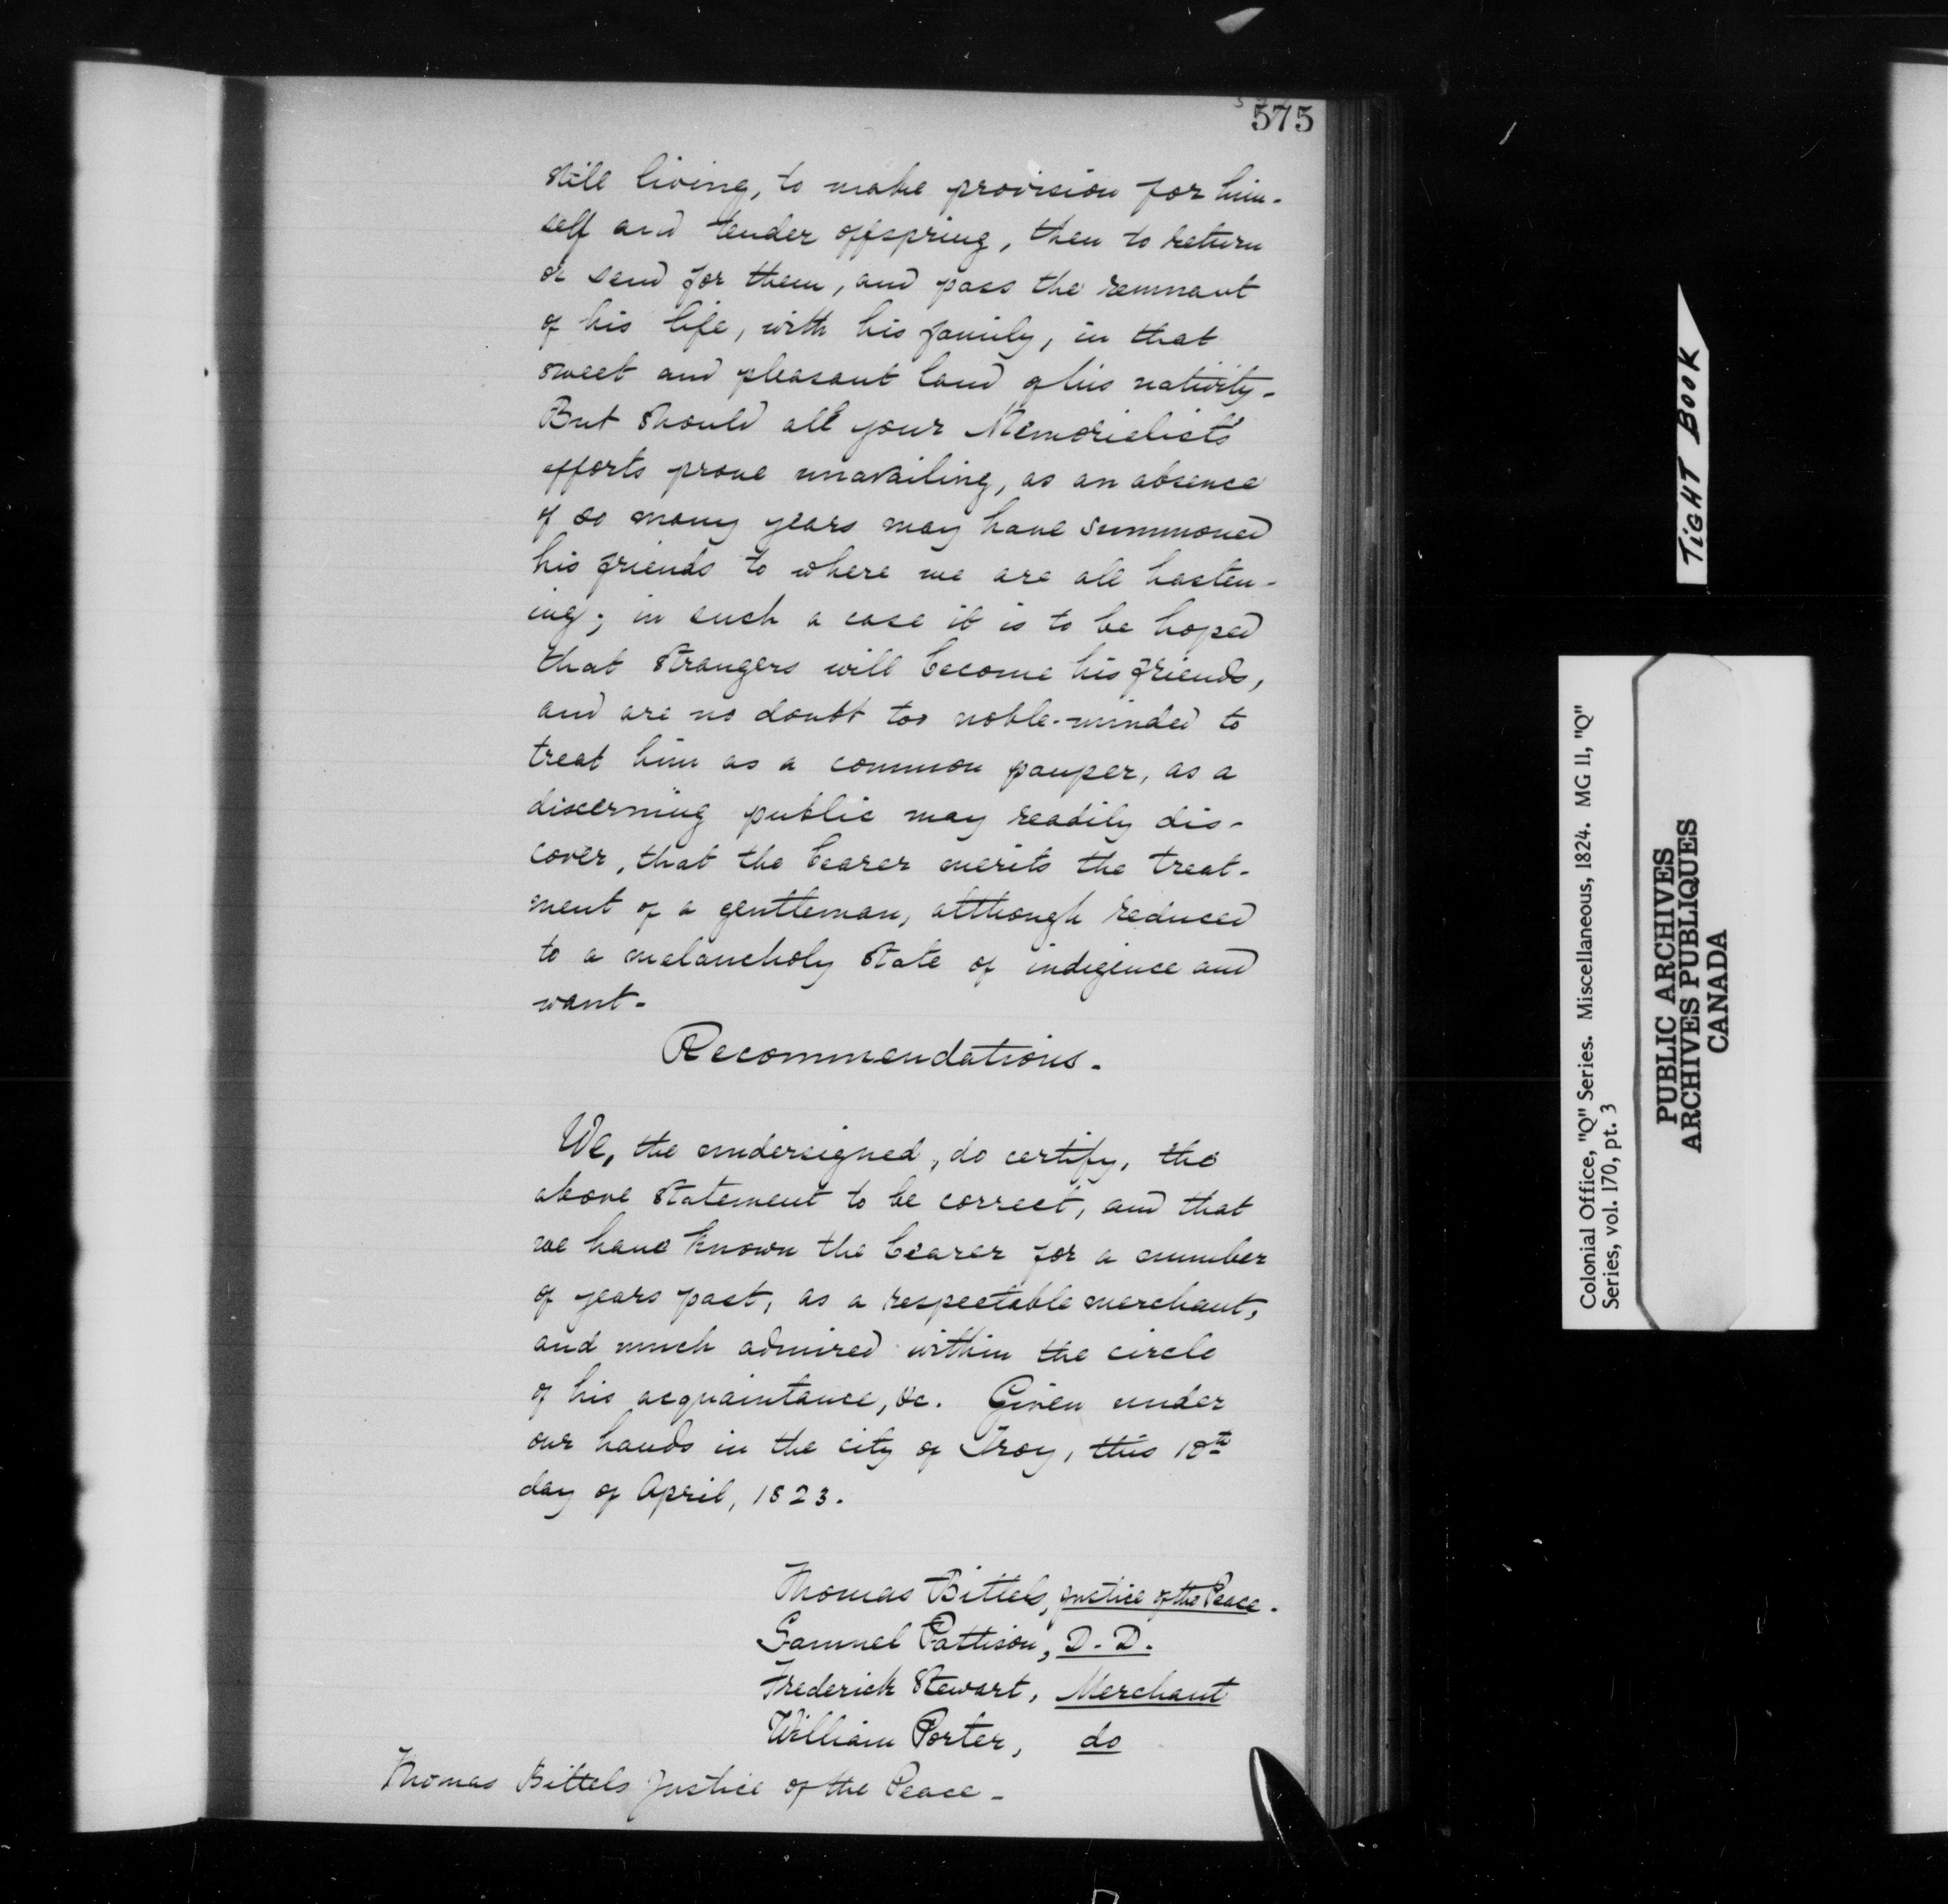 575
still living, to make provision for him-
self and tender offspring, then to return
or send for them, and pass the remnant
of his life, with his family, in that
sweet and pleasant land of his nativity-
But should all your Memorialist's
efforts prove unavailing, as an absence
of so many years may have summoned
his friends to where we are all hasten-
ing; in such a case it is to be hoped
that strangers will become his friends,
and are no doubt too noble-minded to
treat him as a common pauper, as a
discerning public may readily dis-
cover, that the bearer merits the treat-
ment of a gentleman, although reduced
to a melancholy state of indigence and
want-
Recommendations.
We, the undersigned, do certify, the
above statement to be correct, and that
we have known the bearer for a number
of years past, as a respectable merchant,
and much admired within the circle
of his acquaintance, &c. Given under
our hands in the city of Troy, this 18th
day of April, 1823.
Thomas Bittels, Justice of the Peace.
Samuel Pattison, D. D.
Frederick Stewart, Merchant
William Porter, do
Thomas Bittels Justice of the Peace-
TIGHT BOOK
Colonial Office, "Q" Series. Miscellaneous, 1824. MG 11, "Q"
Series, vol. 170, pt. 3
PUBLIC ARCHIVES
ARCHIVES PUBLIQUES
CANADA